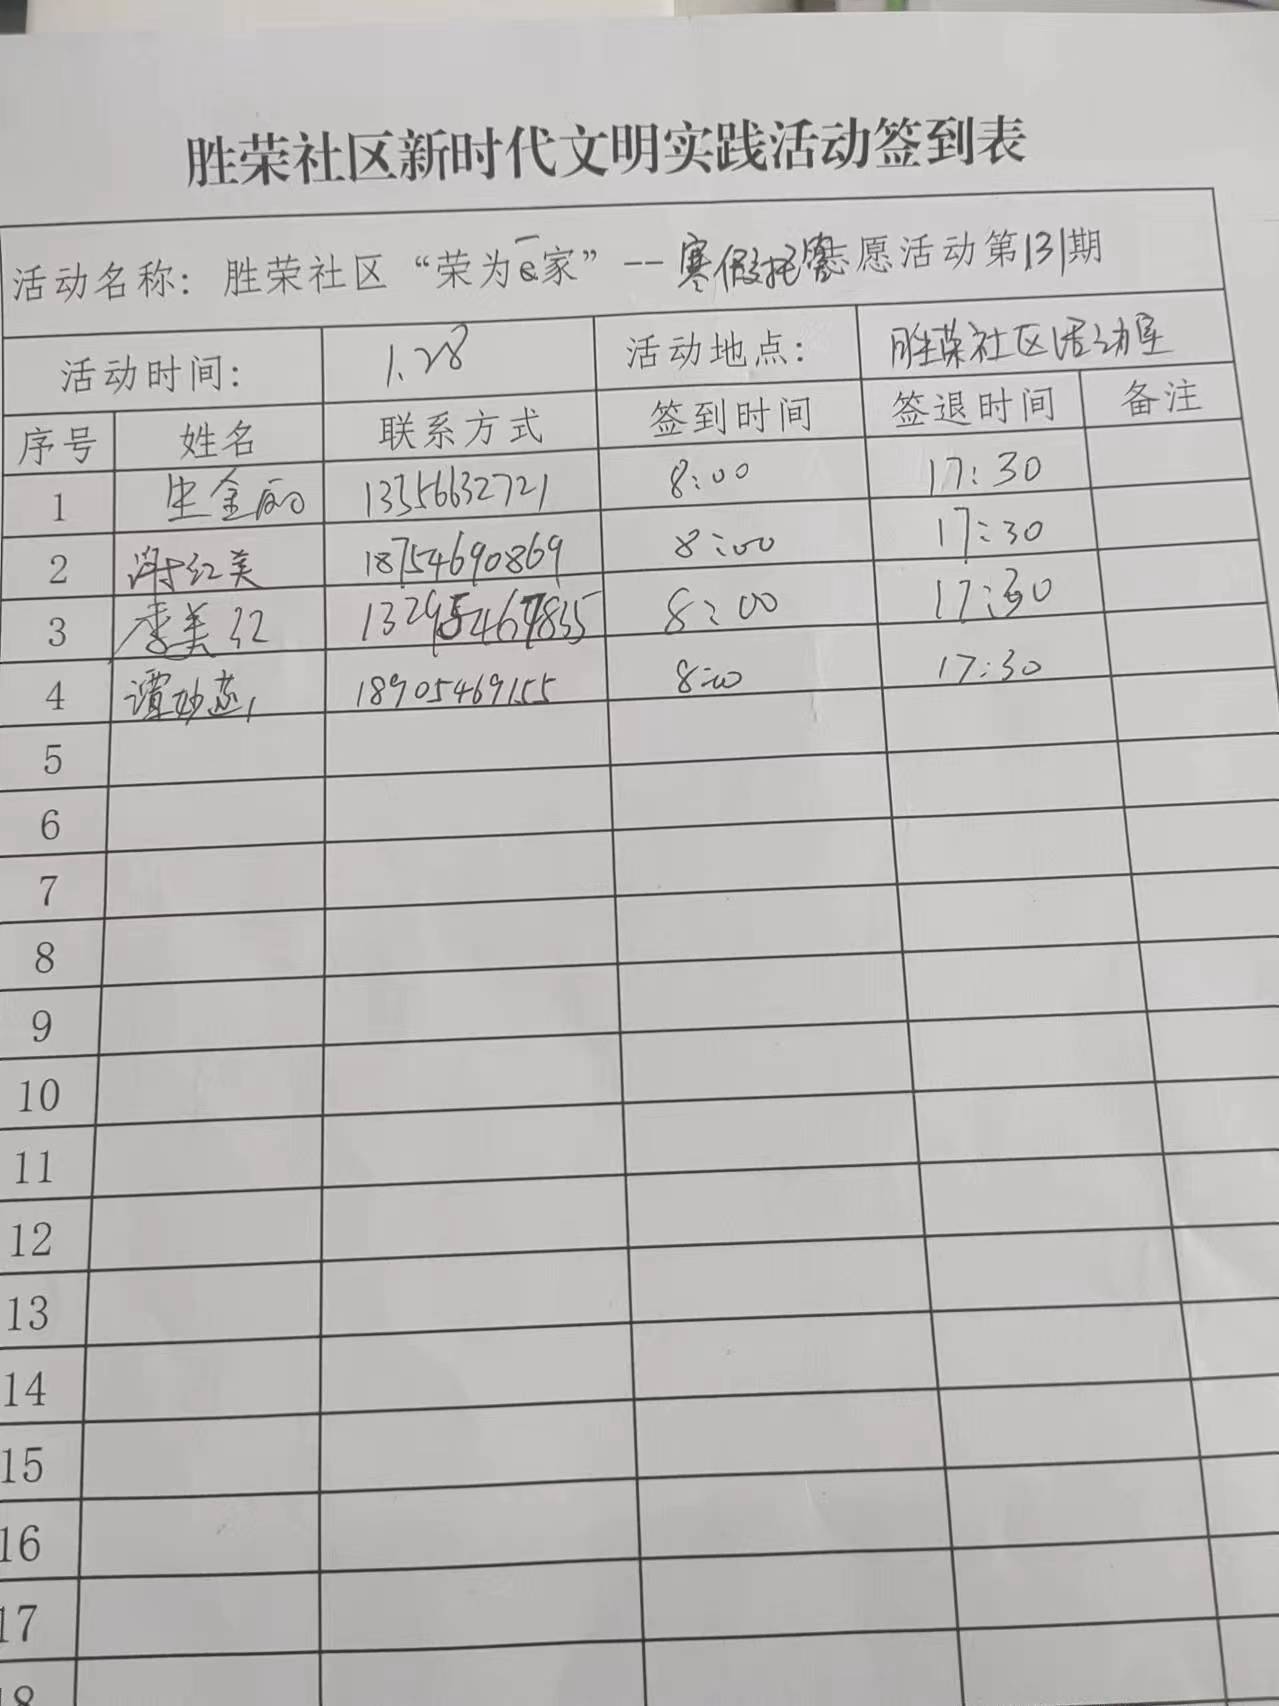 胜荣社区新时代文明实践活动签到表
活动名称：胜荣社区“荣为e家”--寒假托管志愿活动第131期
活动时间： 1.28 活动地点： 胜荣社区活动室
序号 姓名 联系方式 签到时间 签退时间 备注
1 生金丽 13356632721 8:00 17:30
2 谢红美 18754690869 8:00 17:30
3 李美红 8:00 17:30
4 谭妙燕 18905469155 8:00 17:30
5
6
7
8
9
10
11
12
13
14
15
16
17
18